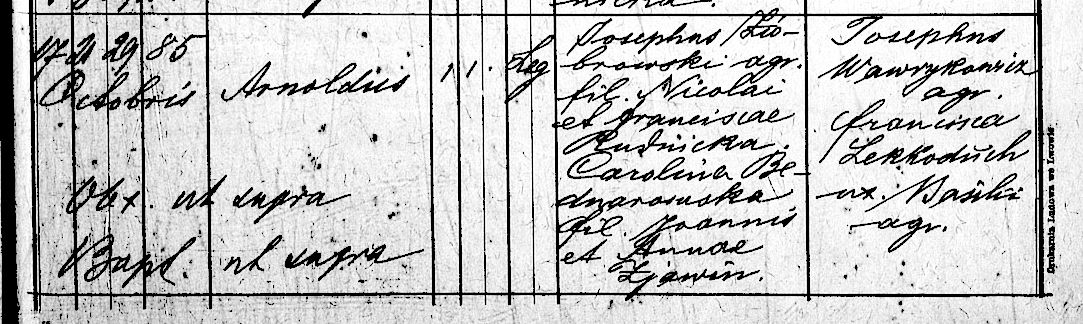 nicka.
17 21 29 85
Octobris
Arnoldus
1 1.
Leg
Josephus Zio-
browski agr.
fil. Nicolai
et Franciscae
Rudnicka.
Carolina Be-
dnarowska
fil. Joannis
et Annae
Josephus
Wawrykowicz
agr.
Francisca
Lekkoduch
ux. Basilii
agr.
Obx. ut supra
Bapt. ut supra
Drukarnia Ludowa we Lwowie